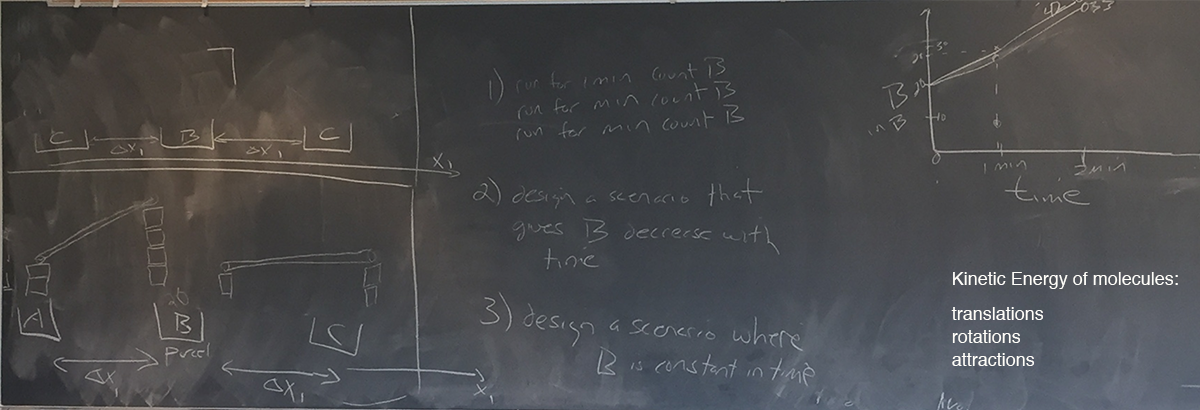 C B C
Δx₁ Δx₁
x₁
A B C
Parcel
Δx₁ Δx₁
x₁
1) run for 1min count B
run for min count B
run for min count B
2) design a scenario that
gives B decrease with
time
3) design a scenario where
B is constant in time
B
in B
20
10
0
1min 2min
time
Kinetic Energy of molecules:
translations
rotations
attractions